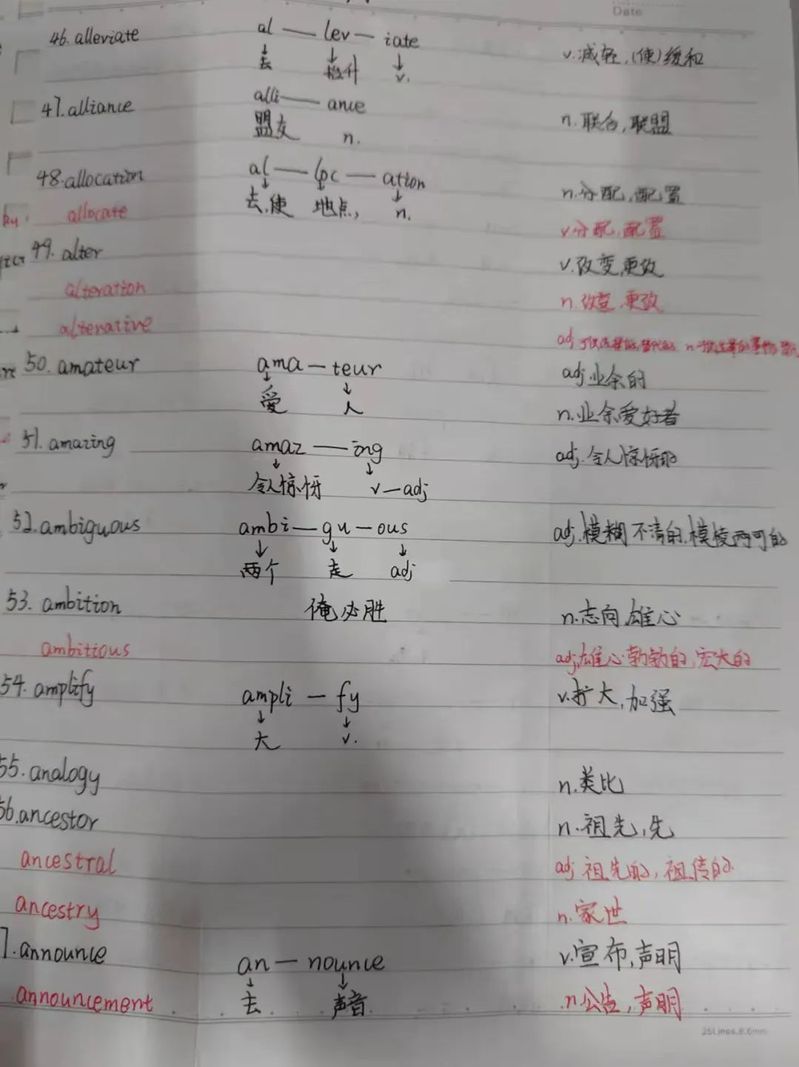 Date
46. alleviate al — lev — iate v.减轻,(使)缓和
去 提升 v.
47. alliance alli — ance n.联合,联盟
盟友 n.
48. allocation al — loc — ation n.分配,配置
去,使 地点, n.
allocate v分配,配置
49. alter v.改变,更改
alteration n.改变,更改
alterative adj
50. amateur ama — teur adj业余的
爱 人 n.业余爱好者
51. amazing amaz — ing adj.令人惊讶的
令人惊讶 v—adj
52. ambiguous ambi — gu — ous adj.模糊不清的,模棱两可的
两个 走 adj
53. ambition 俺必胜 n.志向,雄心
ambitious adj,雄心勃勃的,宏大的
54. amplify ampli — fy v.扩大,加强
大 v.
55. analogy n.类比
56. ancestor n.祖先,先
ancestral adj 祖先的,祖传的
ancestry n.家世
7. announce an — nounce v.宣布,声明
去 声音
announcement n.公告,声明
25Lines,8.6mm